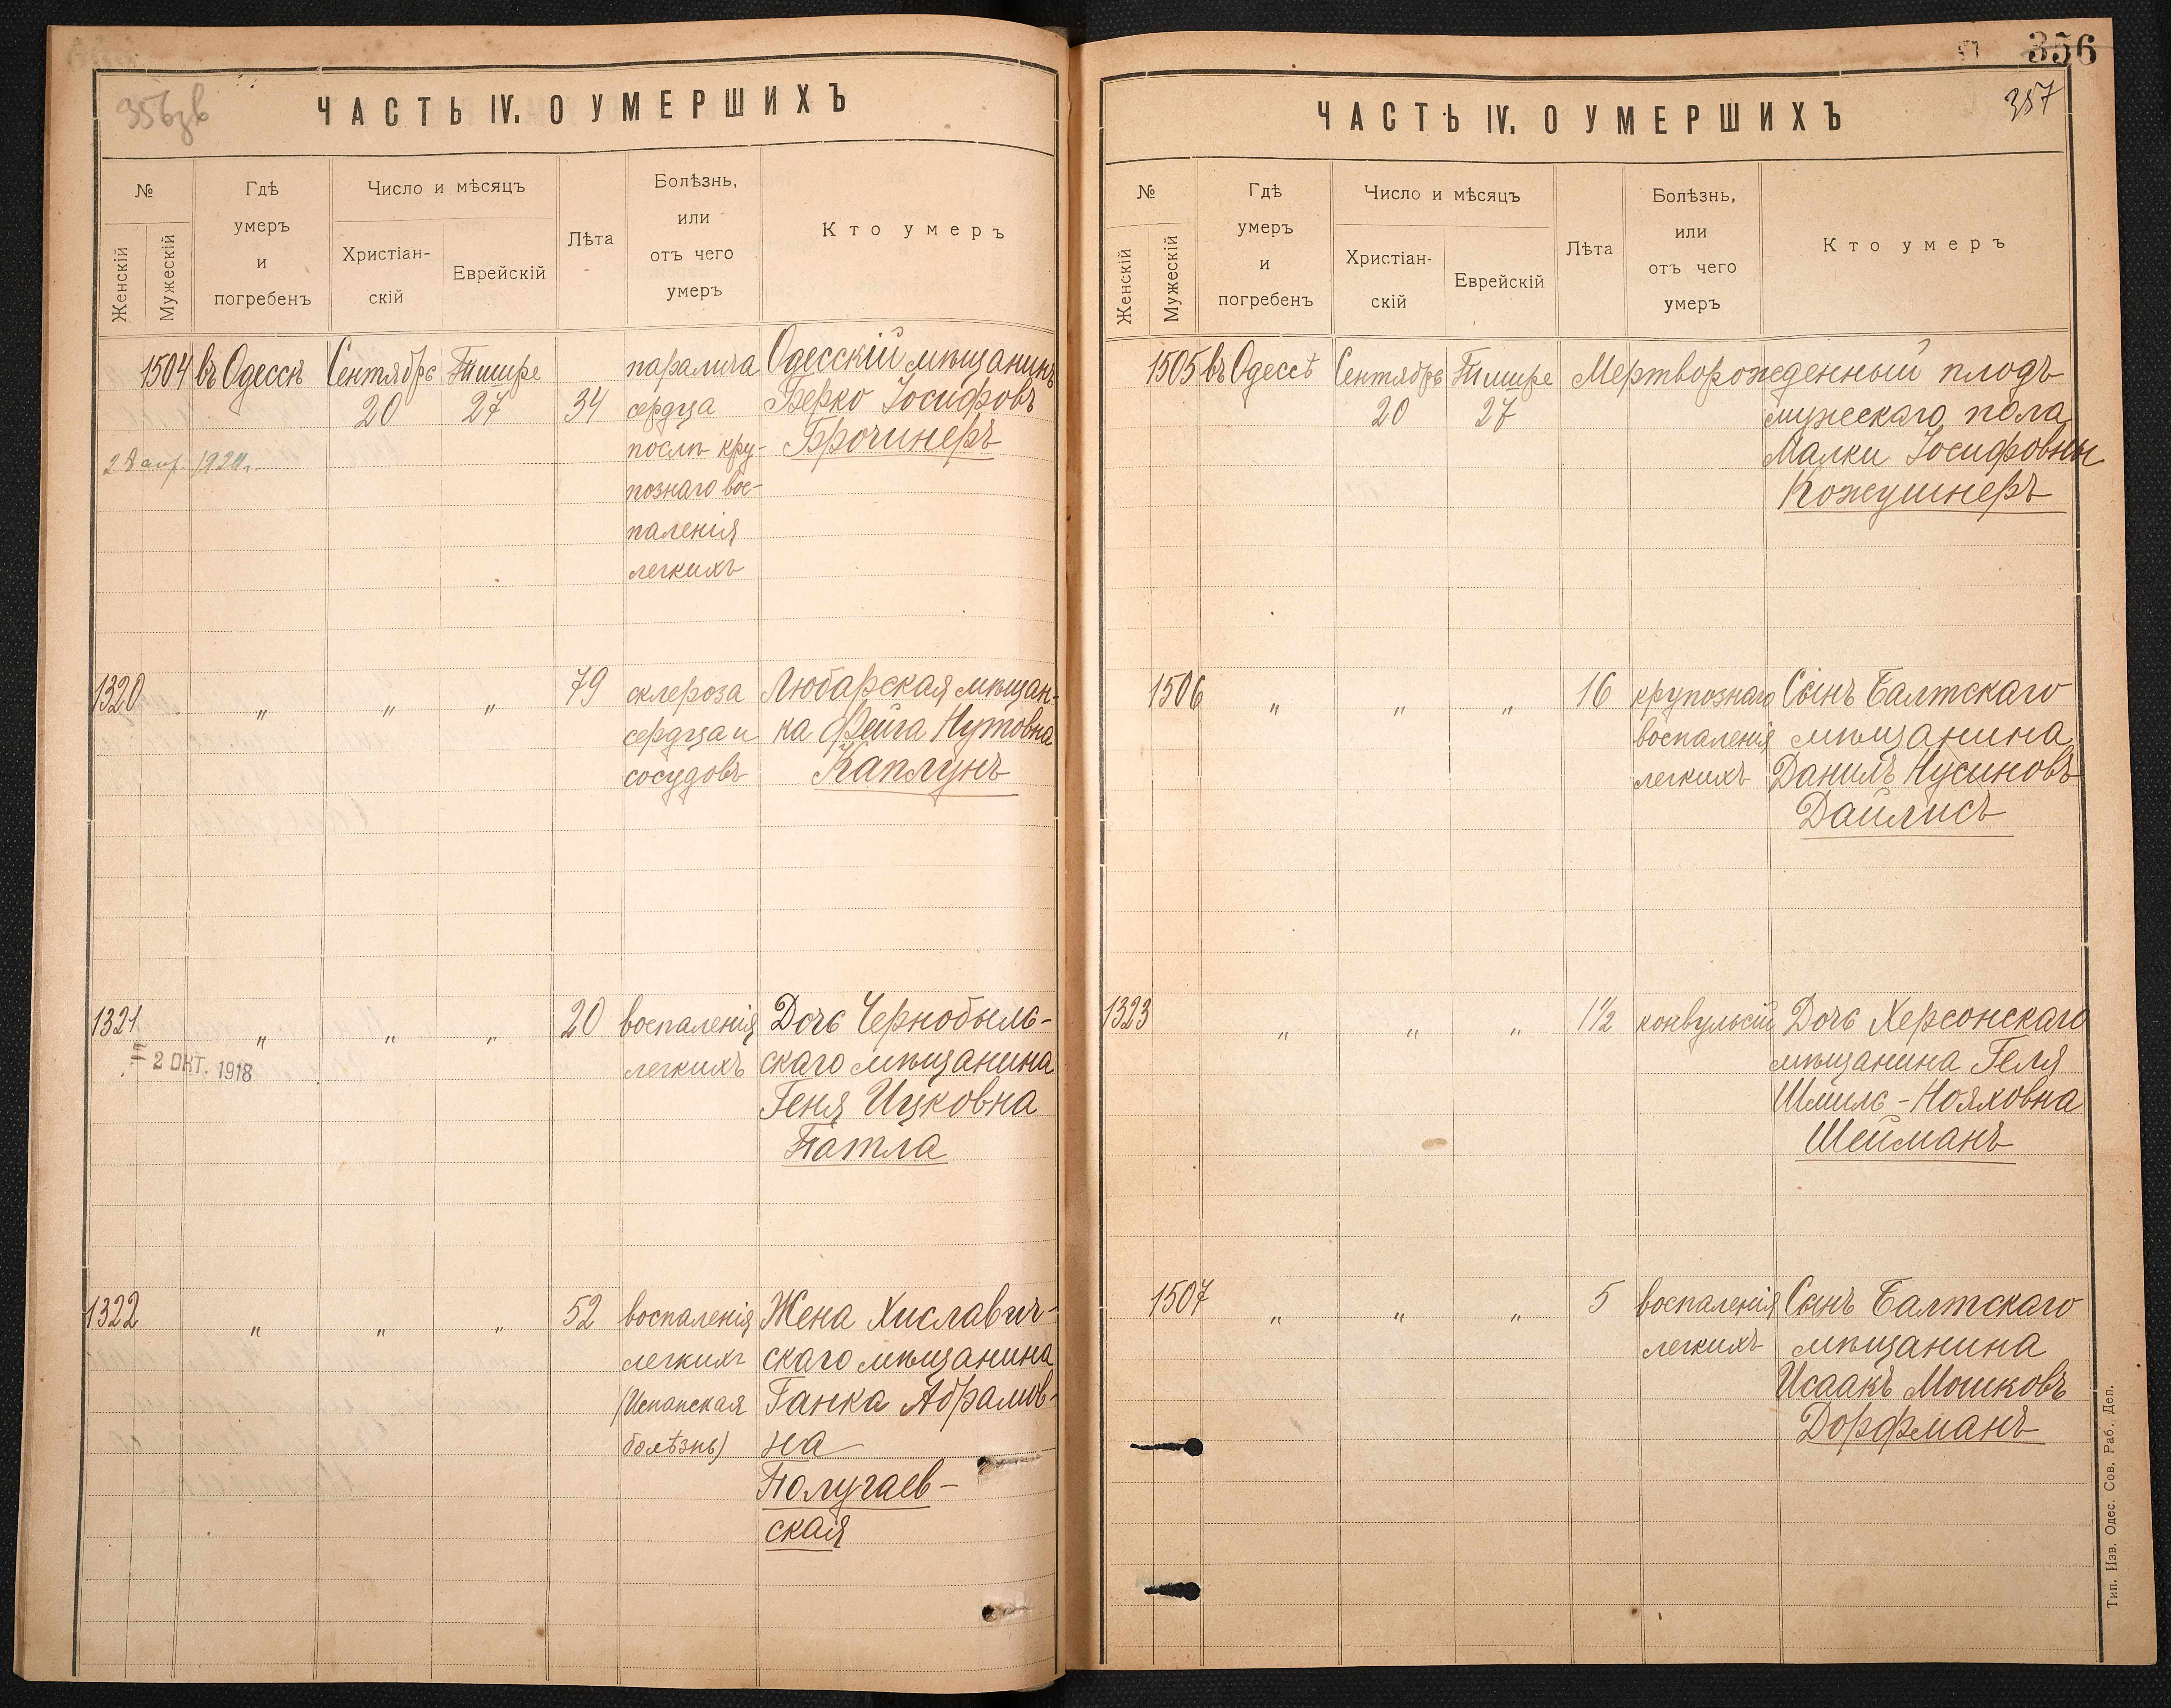 356зв
ЧАСТЬ IV. О УМЕРШИХЪ
№
Женскій
Мужескій
Гдѣ
умеръ
и
погребенъ
Число и мѣсяцъ
Христіан-
скій
Еврейскій
Лѣта
Болѣзнь,
или
отъ чего
умеръ
Кто умеръ
1504 въ Одессѣ Сентябрь Тишре паралича Одесскій мѣщанинъ
20 27 34 сердца Берко Іосифовъ
послѣ кру- Брочинеръ
28 апр. 1920г.
познаго вос-
паленія
легкихъ
1320 " " " 79 склероза Любарская мѣщан-
сердца и ка Фейга Нутовна
сосудовъ Каплунъ
1321 " " " 20 воспаленія Дочь Чернобыль-
= 2 ОКТ. 1918
легкихъ скаго мѣщанина
Геня Ицковна
Патла
1322 " " " 52 воспаленія Жена Хиславич-
легкихъ скаго мѣщанина
(Испанская Ганка Абрамов-
болѣзнь) на
Полугаев-
ская
356
357
ЧАСТЬ IV. О УМЕРШИХЪ
№
Женскій
Мужескій
Гдѣ
умеръ
и
погребенъ
Число и мѣсяцъ
Христіан-
скій
Еврейскій
Лѣта
Болѣзнь,
или
отъ чего
умеръ
Кто умеръ
1505 въ Одессѣ Сентябрь Тишре Мертворожденный плодъ
20 27 мужескаго пола
Малки Іосифовны
Кожушнеръ
1506 " " " 16 крупознаго Сынъ Балтскаго
воспаленія мѣщанина
легкихъ Данилъ Нусиновъ
Дайлисъ
1323 " " " 1½ конвульсій Дочь Херсонскаго
мѣщанина Геля
Шмиль-Нояховна
Шейманъ
1507 " " " 5 воспаленія Сынъ Балтскаго
легкихъ мѣщанина
Исаакъ Мошковъ
Дорфманъ
Тип. Изв. Одес. Сов. Раб. Деп.